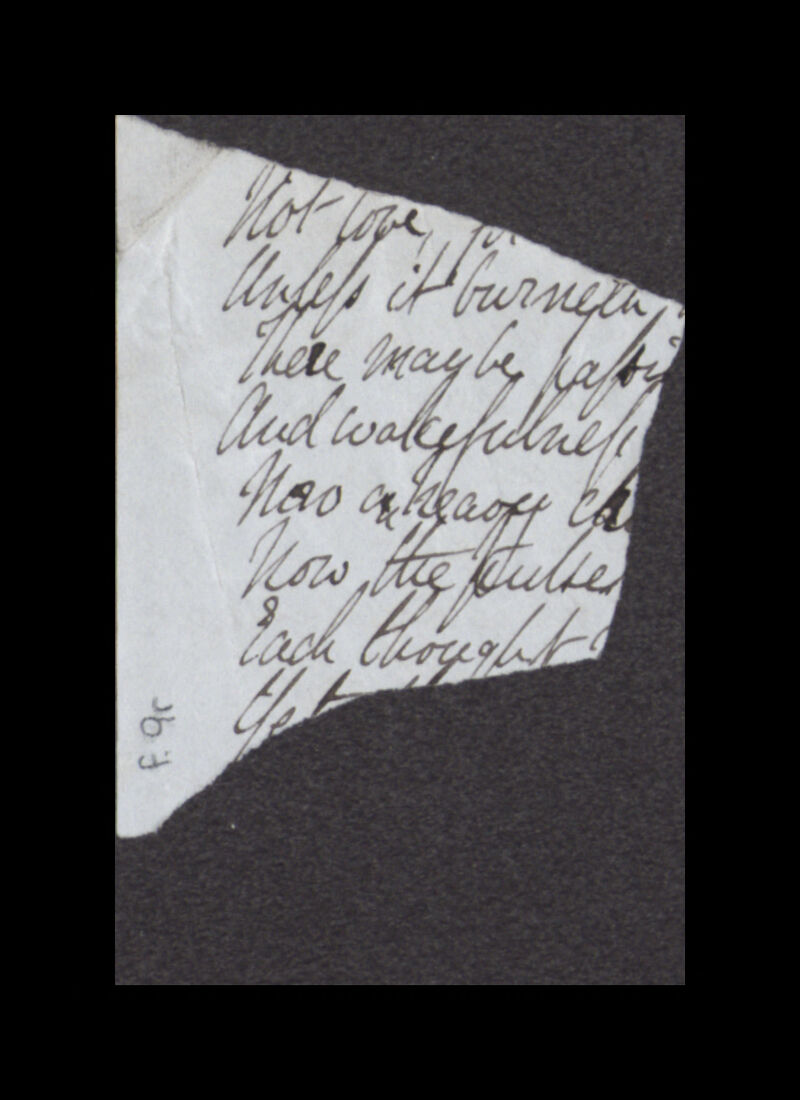 Not love,
Unless it burneth
There may be passi
And wakefulness
Now a heavy
Now the pulse
Each thought
Yet
f. 9r